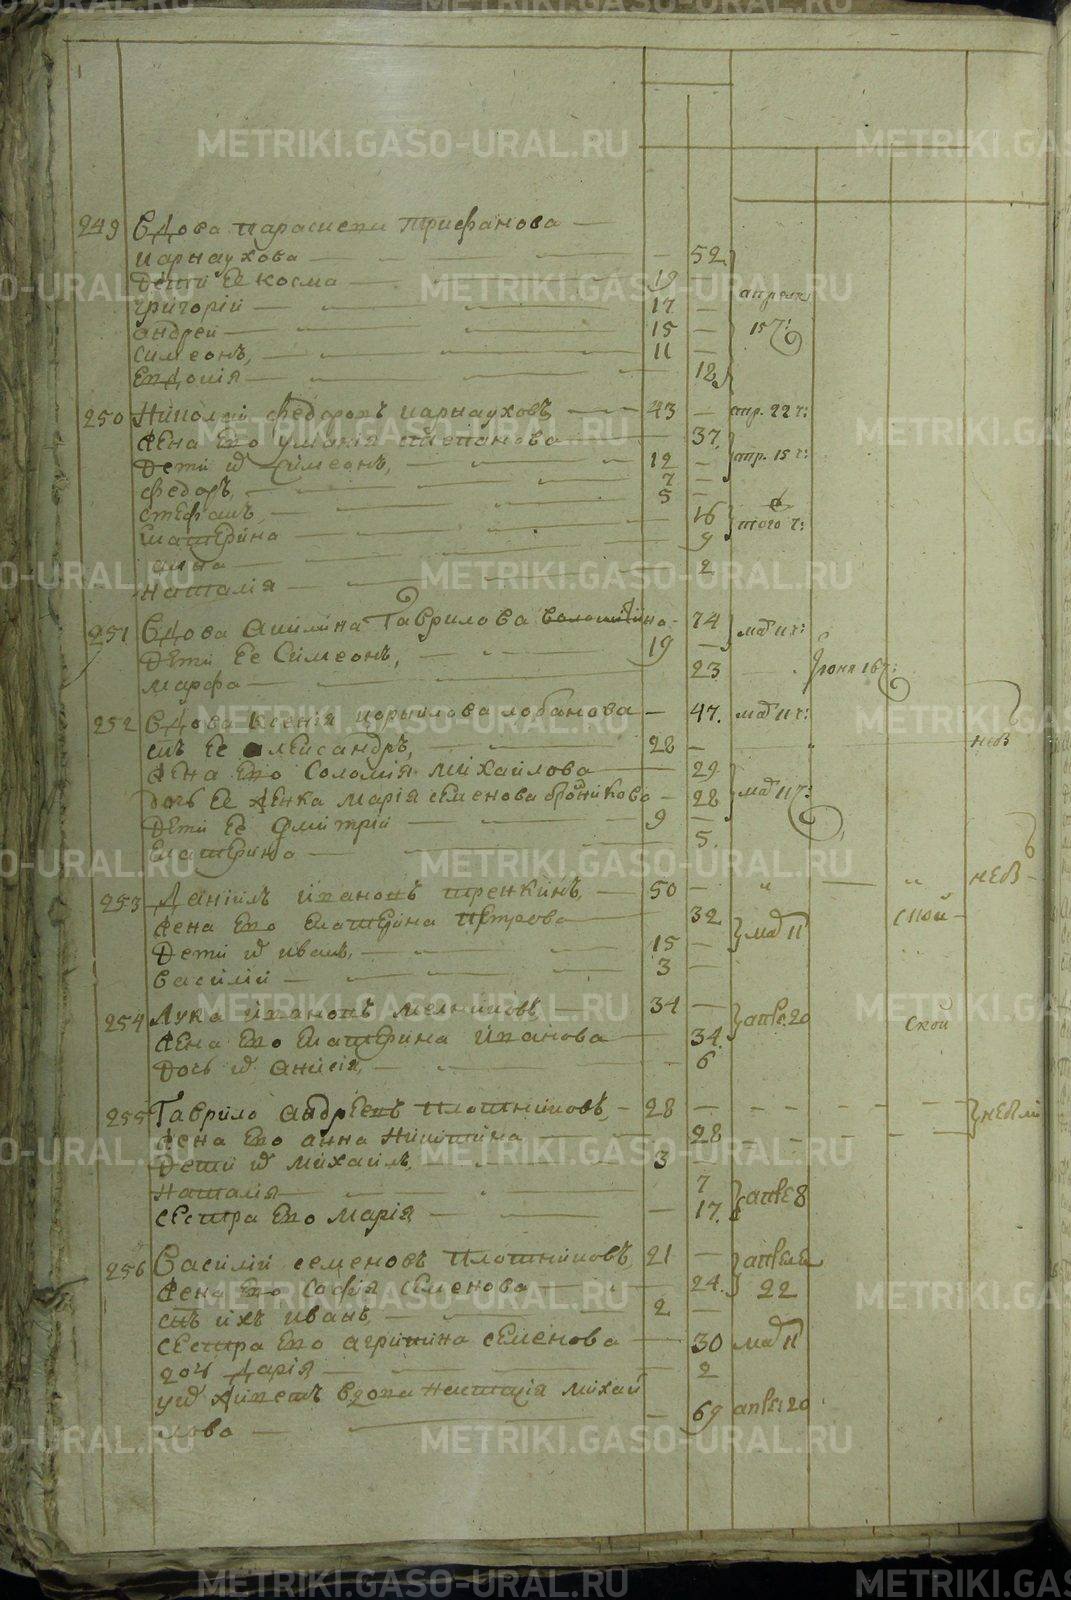 METRIKI.GASO-URAL.RU
249 Вдова Параскеви Трифанова
Карнаухова 52
Дети ее Козма 19 апреля
Григорий 17
Андрей 15 15 ч:
Симеонъ, 11
Евдокия 12
250 Федоровъ Карнауховъ 43 апр. 22 ч:
Жена ево Степанова 37
Дети их Симеонъ, 12 апр. 15 ч:
Федоръ, 7
Стефанъ, 5
Екатерина 16 того ч:
Анна 9
Наталия 2
251 Вдова Акилина Гаврилова 74 маия 11 ч:
Дети ее Симеонъ, 19
Марфа 23 июня 16 ч:
252 Вдова Ксения Корнилова Лобанова 47. маия 11 ч:
снъ ее Александръ, 28 нев
Жена ево Соломия Михайлова 29
дочь ее женка Мария Семенова Бродникова 28 маия 11 ч:
Дети ее Дмитрий 9
Екатерина 5.
253 Даниилъ Ивановъ 50 " " нев
Жена ево Екатерина Петрова 32 маия 11 ской
Дети их Иванъ, 15
Василий 3
254 Лука Ивановъ Мелниковъ 34 апре: 20 ской
Жена ево Екатерина Иванова 34.
Дочь их Анисия, 6
255 Гаврило Андреевъ Плотниковъ, 28
Жена ево Анна Никитина 28
Дети их Михаилъ, 3
Наталия 7
Сестра ево Мария 17. апре 8
256 Василий Семеновъ Плотниковъ, 21
Жена ево София Семенова 24. 22
снъ ихъ Иванъ, 2
Сестра ево Агрипина Семенова 30 маия 11
доч Дария 2
у их живетъ вдова Настасия Михай
лова 69 апре: 20